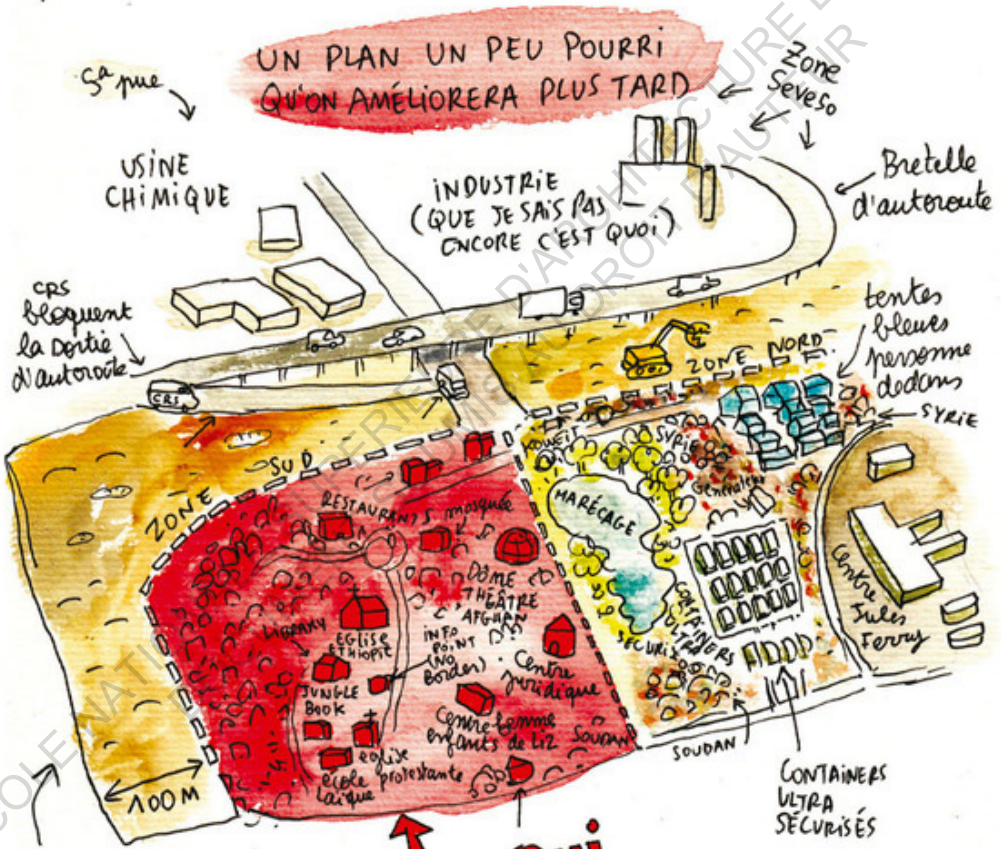 UN PLAN UN PEU POURRI
QU'ON AMÉLIORERA PLUS TARD
Ça pue
USINE
CHIMIQUE
INDUSTRIE
(QUE JE SAIS PAS
ENCORE C'EST QUOI)
Zone
Seveso
Bretelle
d'autoroute
CRS
bloquent
la sortie
d'autoroute
CRS
tentes
bleues
personne
dedans
SYRIE
ZONE NORD
ZONE SUD
KOWEIT
SYRIE
Générateur
MARÉCAGE
RESTAURANTS
mosquée
DÔME
THÉÂTRE
AFGHAN
LIBRARY
EGLISE
ETHIOPIE
INFO
POINT
(NO
BORDER)
Centre
juridique
JUNGLE
BOOK
Centre femme
enfants de Liz
SOUDAN
eglise
protestante
école
laïque
CONTAINERS
ULTRA
SÉCURISÉS
Centre
Jules
Ferry
SOUDAN
CONTAINERS
ULTRA
SÉCURISÉS
100M